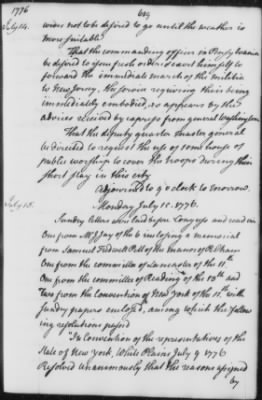 1776
609
July 14.
wises not to be desired to go until the weather is
more suitable
That the commanding officer in Pensylvania
be desired to issue fresh orders & exert himself to
forward the immediate march of the militia
to New Jersey. the service requiring their being
immediately embodied, as appears by the
advices received by express from general Washington
That the deputy quarter master general
be directed to request the use of some house of
public worship to cover the troops during their
short stay in this city
Adjourned to 9 o'Clock to Morrow.
July 15.
Monday July 15. 1776.
Sundry letters were laid before Congress and read viz
One from Mr Jay of the 6 inclosing a memorial
from Samuel
of the manor of Pelham
One from the committee of Lancaster of the 11th
One from the committee of Reading of the 13th and
Two from the Convention of New York of the 11th with
sundry papers enclosed, among which the follow
ing resolutions passed
In Convention of the representatives of the
State of New York, White Plains July 9 1776
Resolved Unanimously that the reasons assigned
by